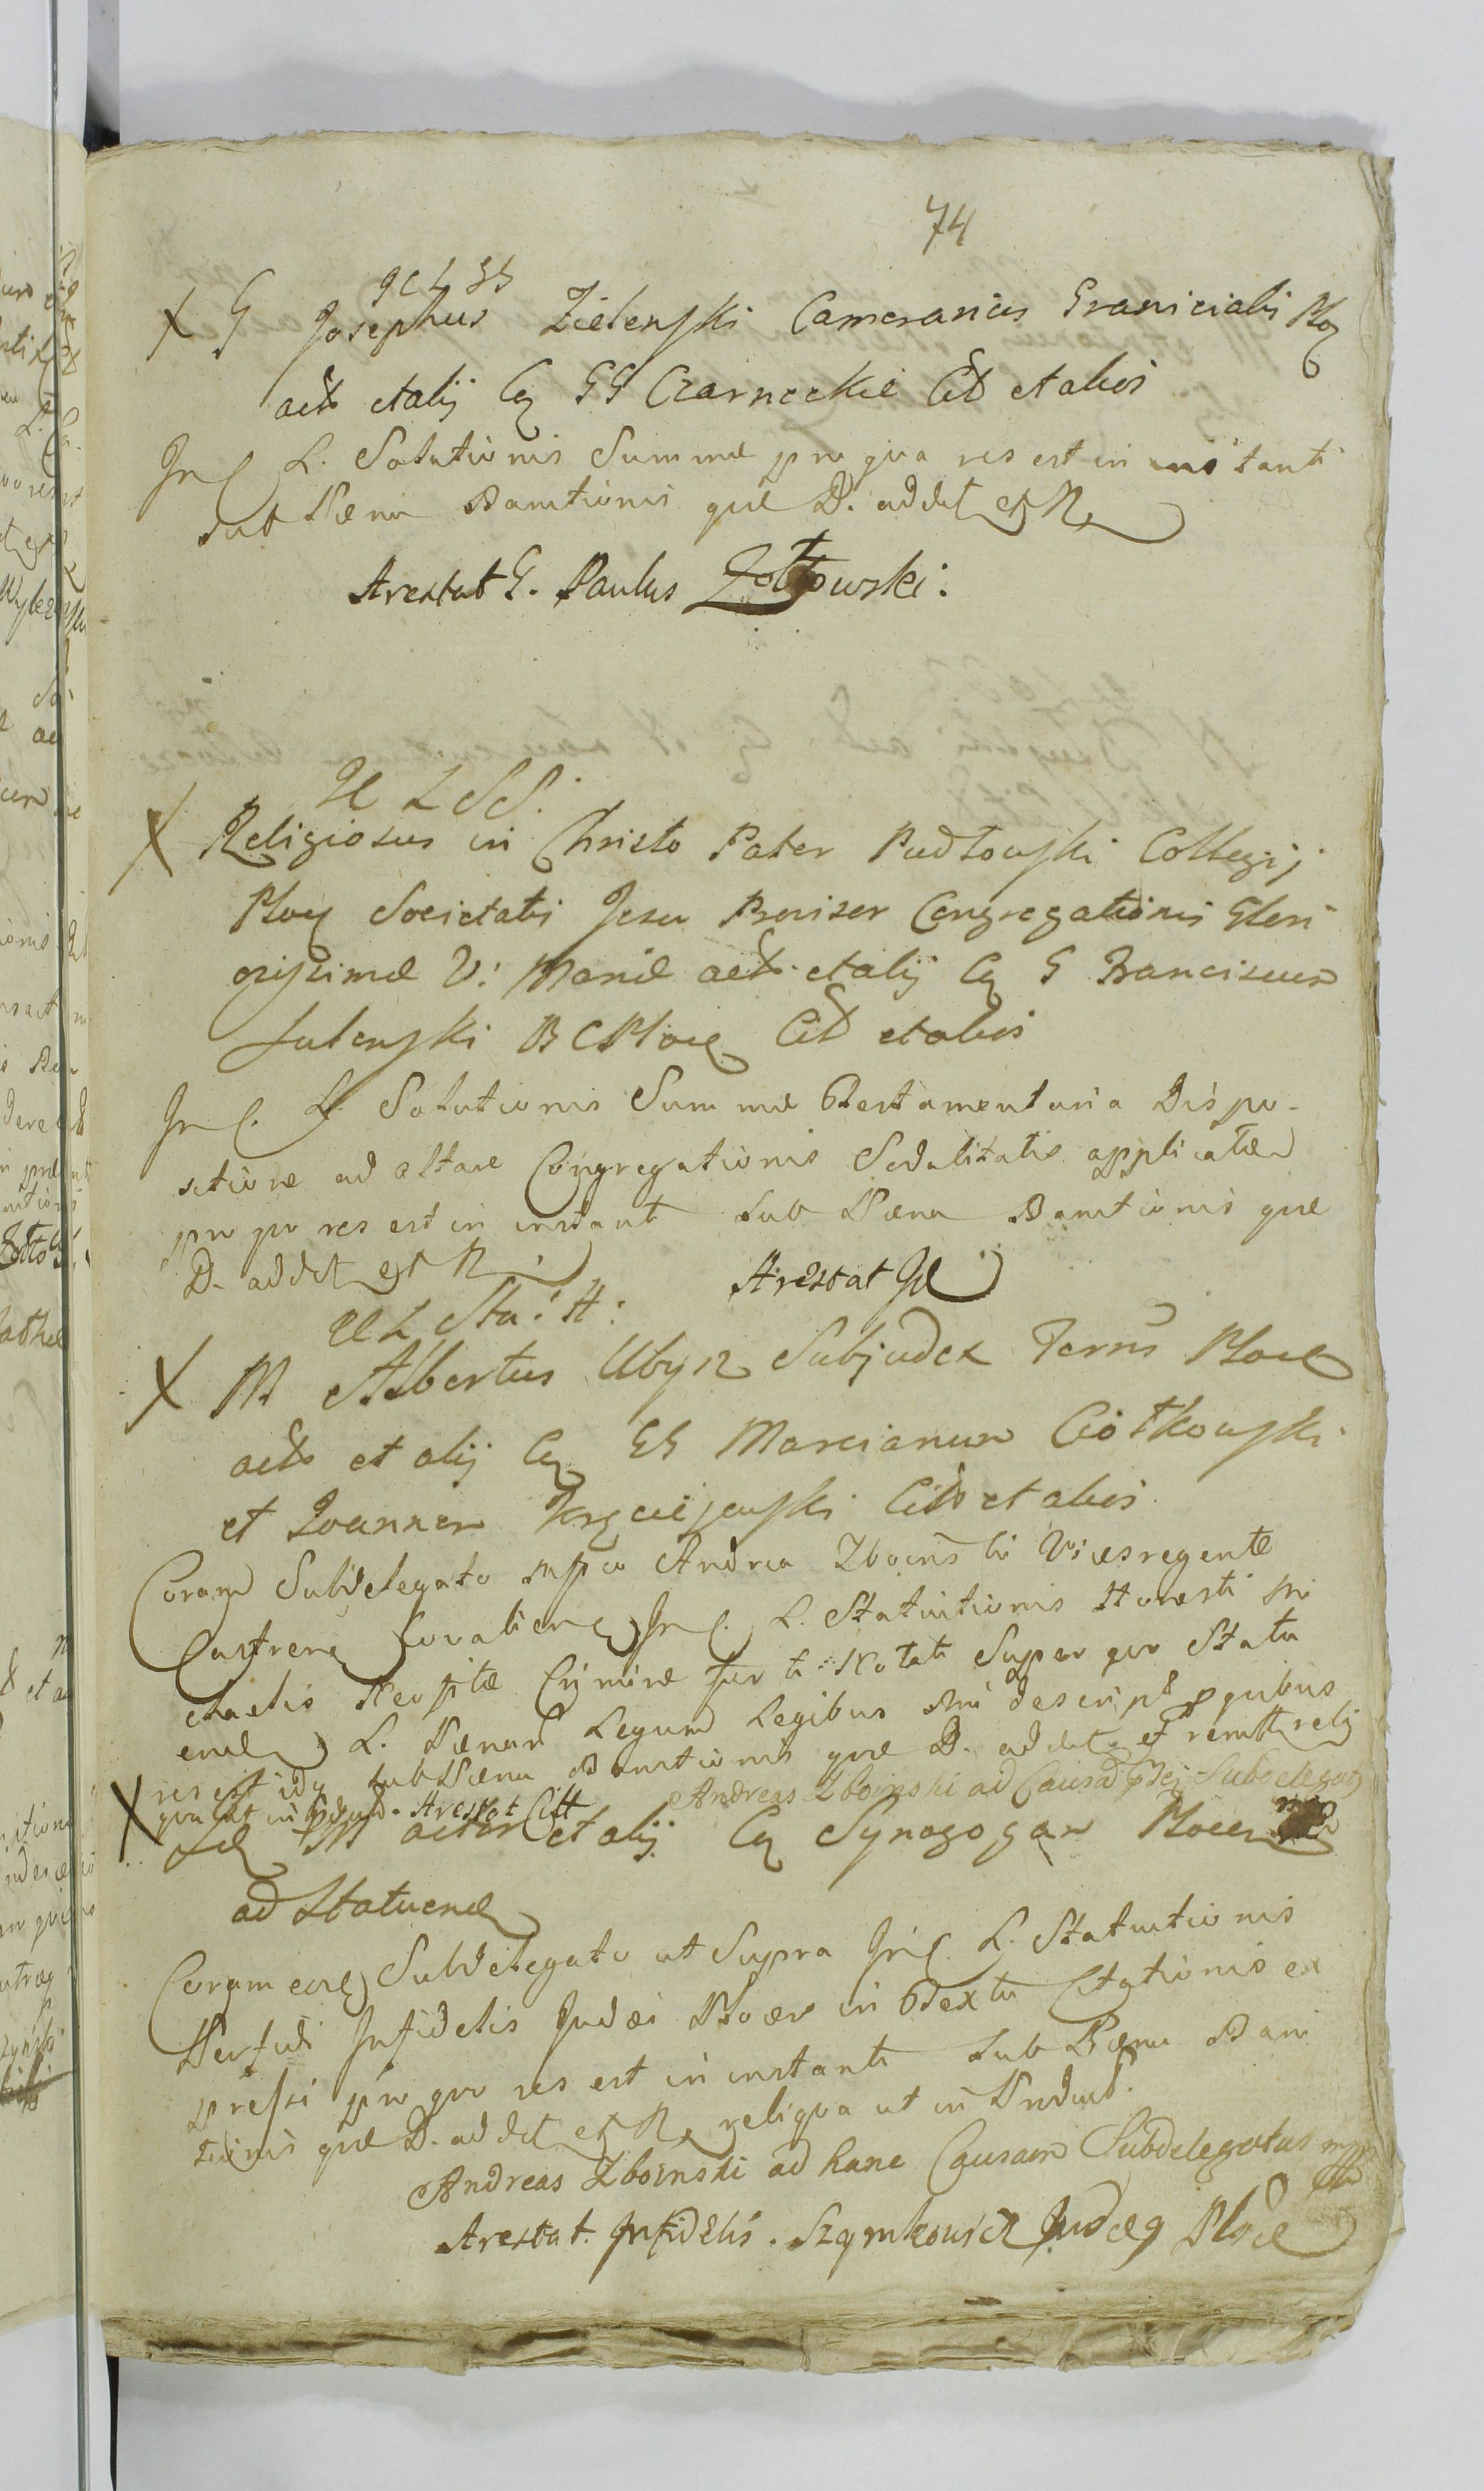 74
X G Josephus Zielenski Camerarius Granicialis Ploc
actor et alij Cq GG Czarneckie Cit et alios
In C. L. Solutionis Summæ pro qua res est in instanti
sub Pæna Banitionis quæ D. addet et R
Arestat G. Paulus Zołtowski.
JC L SS.
X Religiosus in Christo Pater Pudłowski Collegij
Ploc Societatis Jesu Provisor Congregationis Glori
osissimæ V: Mariæ actor et alij Cq G Franciscum
B C Ploce Cit et alios
In C. L. Solutionis Summæ Testamentaria Dispo-
sitione ad altare Congregationis Sodalitatis applicatæ
pro quo res est in instanti sub Pæna Banitionis quæ
D. addet et R. Arestat JC
M Albertus Ubysz Subjudex Terris Ploce
actor et alij Cq GG Marcianum Ciołkowski
et Joannem Cit et alios
Coram Subdelegato mpco Andrea Zboinski Vicesregente
Castren In C. L. Statuitionis Honesti Mi
chaelis Crimine furti Notati Super quo Statu
L. Pænarum Legum Legibus descript quibus
res est sub Pæna Banitionis quæ D. addet et
Arestat Citt Andreas Zboinski ad Causam Subdelegat
X M actor et alij Cq Synogogam Plocen
ad Statuend
Coram eod Subdelegato ut Supra In C. L. Statuitionis
Perfidi Infidelis Judæi in Textu Citationis ex
pressi pro quo res est in instanti sub Pæna Bani
tionis quæ D. addet et R reliqua ut in
Andreas Zboinski ad hanc Causam Subdelegatus mpp
Arestat Infidelis. Szymkowicz Ploce